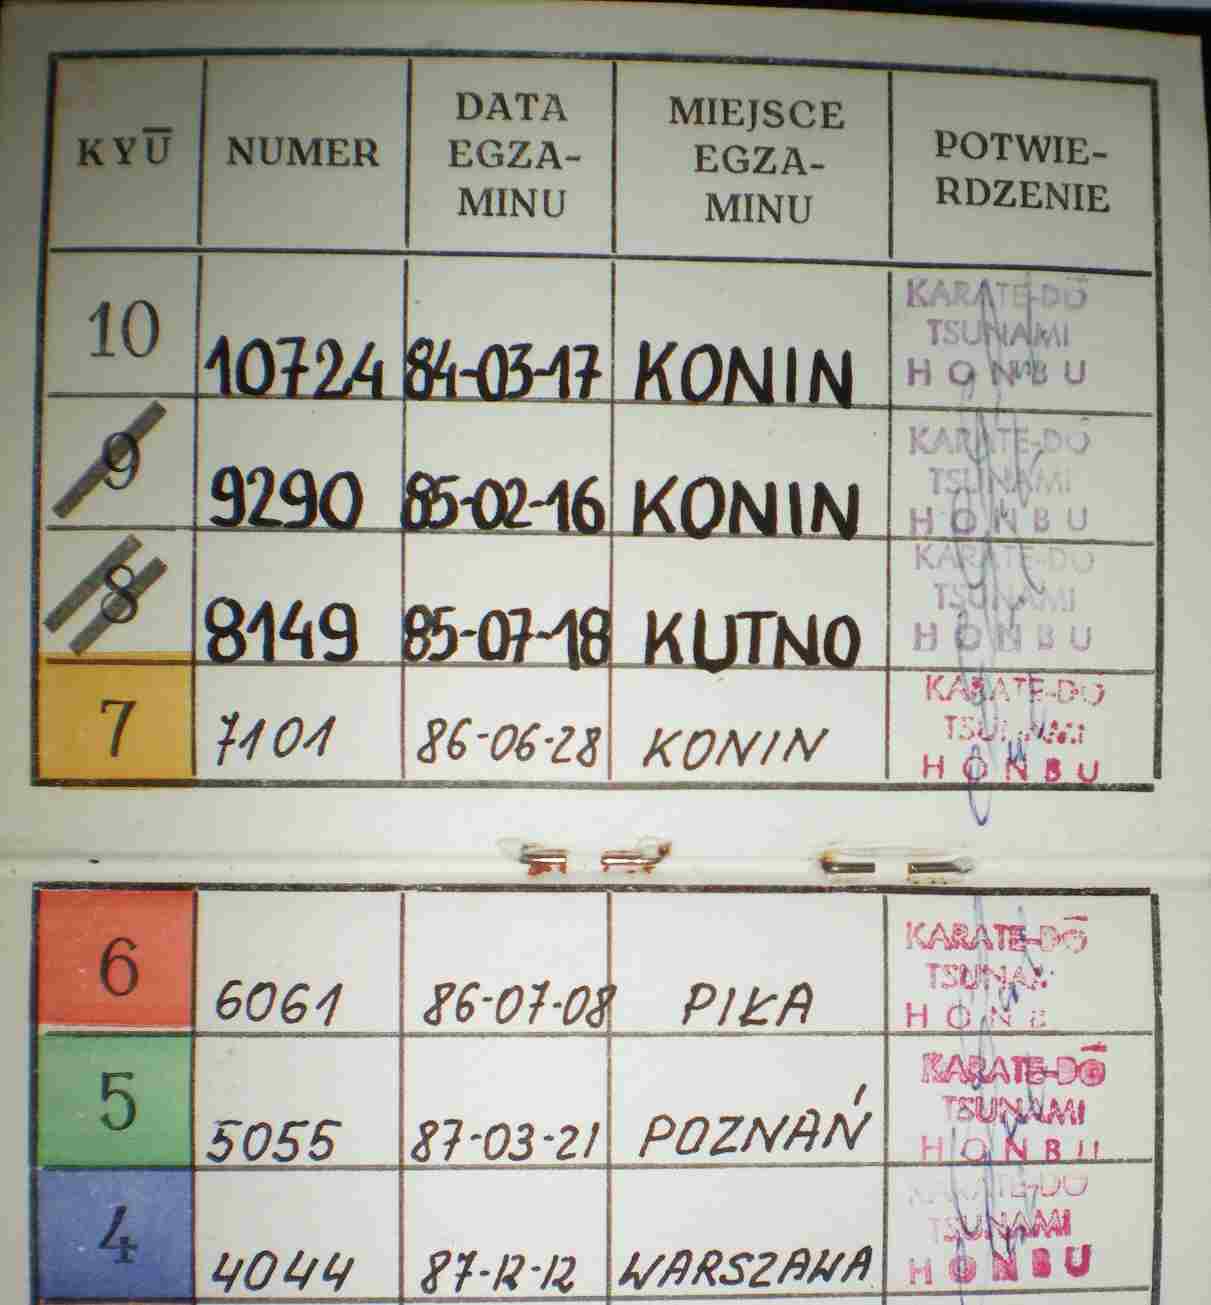 KYŪ NUMER DATA EGZA- MINU MIEJSCE EGZA- MINU POTWIE- RDZENIE
10 10724 84-03-17 KONIN KARATE-DŌ TSUNAMI HONBU
9 9290 85-02-16 KONIN KARATE-DŌ TSUNAMI HONBU
8 8149 85-07-18 KUTNO KARATE-DO TSUNAMI HONBU
7 7101 86-06-28 KONIN KARATE-DŌ TSUNAMI HONBU
6 6061 86-07-08 PIŁA KARATE-DŌ TSUNAM HONB
5 5055 87-03-21 POZNAŃ KARATE-DŌ TSUNAMI HONBU
4 4044 87-12-12 WARSZAWA KARATE-DO TSUNAMI HONBU